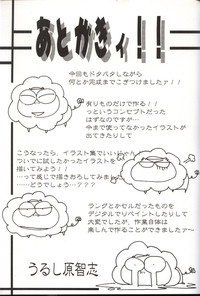 あとがきィ！！
今回もドタバタしながら
何とか完成までこぎつけましたァ！！
有りものだけで作る！！
っというコンセプトだった
はずなのですが、
今まで使ってなかったイラストが
出てきたりして
こうなったら、イラスト集でいいじゃん
ついでに試したかったイラストを
描いてみよう！！
…って感じで描きわろしてみました
……どうでしょう…？？？
ラングとかセルだったものを
デジタルでリペイントしたりして
大変でしたが、作業自体は
楽しんで作ることができました〜
うるし原智志